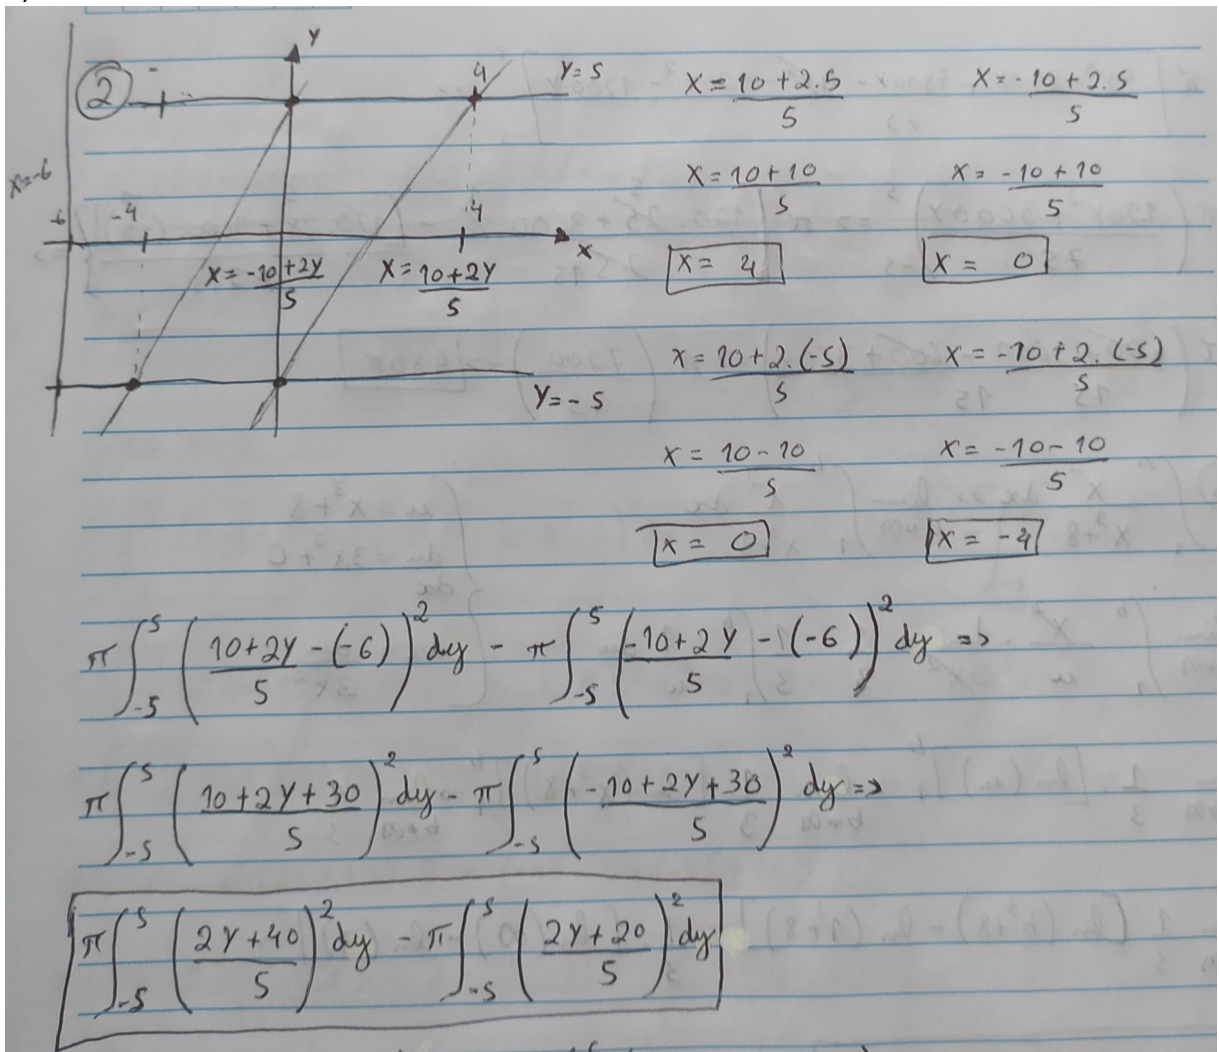 ②
Y
4
Y=5
X=-6
-6
-4
4
X
X=(-10+2Y)/5
X=(10+2Y)/5
Y=-5
X=(10+2.5)/5
X=(-10+2.5)/5
X=(10+10)/5
X=(-10+10)/5
X= 4
X= 0
X=(10+2.(-5))/5
X=(-10+2.(-5))/5
X=(10-10)/5
X=(-10-10)/5
X= 0
X= -4
π∫_{-5}^{5} ((10+2Y)/5 -(-6))^2 dy - π∫_{-5}^{5} ((-10+2Y)/5 -(-6))^2 dy =>
π∫_{-5}^{5} ((10+2Y+30)/5)^2 dy - π∫_{-5}^{5} ((-10+2Y+30)/5)^2 dy =>
π∫_{-5}^{5} ((2Y+40)/5)^2 dy - π∫_{-5}^{5} ((2Y+20)/5)^2 dy